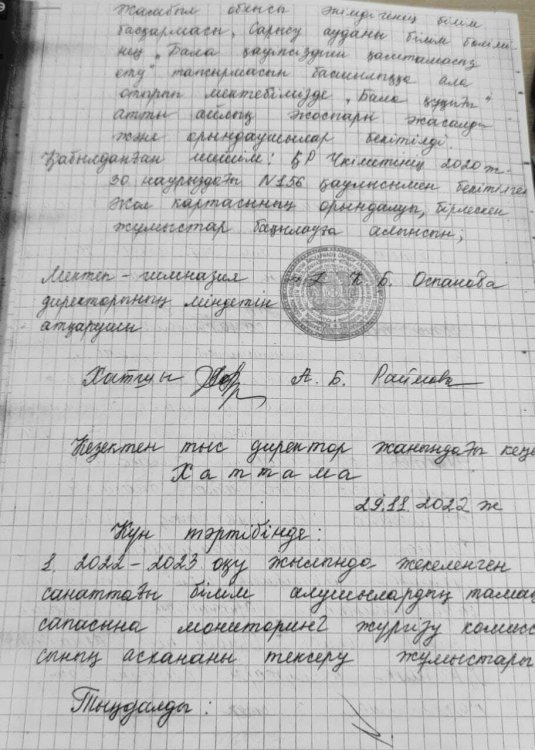 Жамбыл облысы әкімдігінің білім
басқармасы, Сарысу ауданы білім бөлімі-
нің „Бала қауіпсіздігін қамтамасыз
ету" тапсырмасын басшылыққа ала
отырып мектебімізде „Бала құқығы"
атты айлық жоспары жасалды
және орындаушылар бекітілді.
Қабылданған шешім: ҚР Үкіметінің 2020 ж.
30 наурыздағы N156 қаулысымен бекітілген
Жол картасының орындалуы, бірлескен
жұмыстар бақылауға алынсын;
Мектеп-гимназия К. Б. Оспанова
директорының міндетін
атқарушы
Хатшы А. Б. Раймова
Кезектен тыс директор жанындағы кеңе
Хаттама
29.11.2022 ж
Күн тәртібінде:
1. 2022-2023 оқу жылында жекеленген
санаттағы білім алушылардың тамақ
сапасына мониторинг жүргізу комисс
сының асхананы тексеру жұмыстары
Тыңдалды: